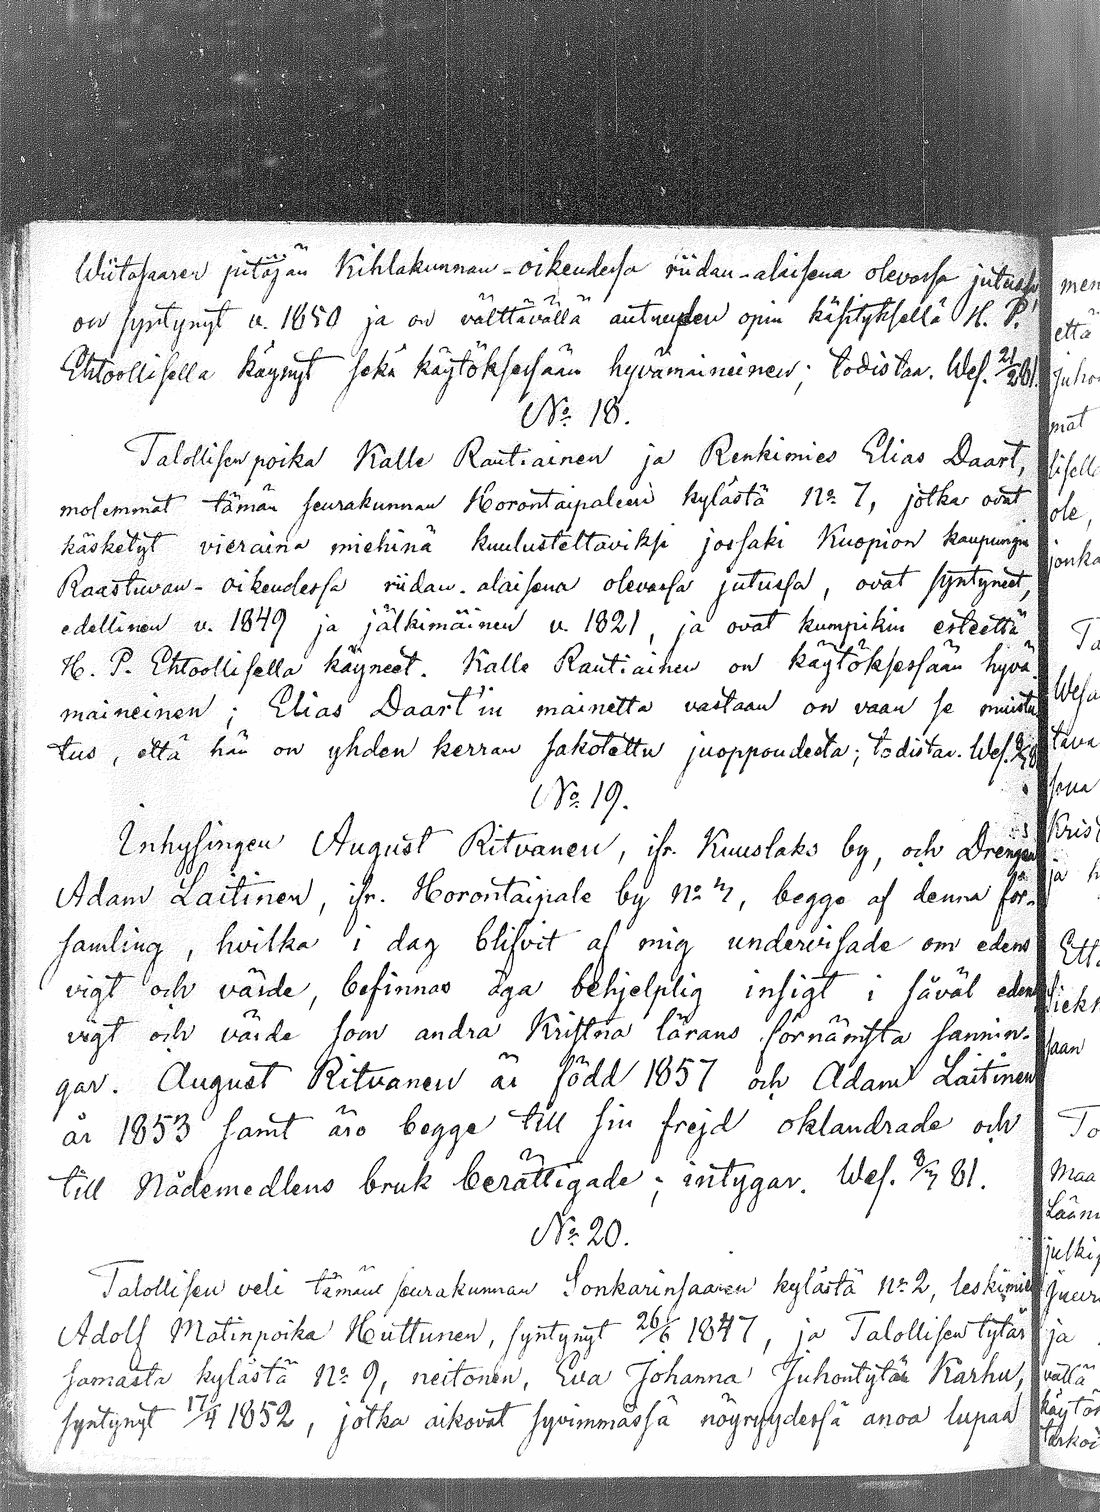 Wiitasaaren pitäjän Kihlakunnan-oikeudessa riidan-alaisena olevassa jutussa
on syntynyt v. 1850 ja on välttävällä autuuden opin käsityksellä H. P.
Ehtoollisella käynyt sekä käytöksessään hyvämaineinen; todistaa. Wes. 21/2 81.
No 18.
Talollisen poika Kalle Rautiainen ja Renkimies Elias Daart,
molemmat tämän seurakunnan Horontaipaleen kylästä No 7, jotka ovat
käsketyt vieraina miehinä kuulusteltaviksi jossaki Kuopion kaupungin
Raastuvan-oikeudessa riidan-alaisena olevassa jutussa, ovat syntyneet,
edellinen v. 1849 ja jälkimäinen v. 1821, ja ovat kumpikin esteettä
H. P. Ehtoollisella käyneet. Kalle Rautiainen on käytöksessään hyvä-
maineinen; Elias Daart'in mainetta vastaan on vaan se muistu
tus, että hän on yhden kerran sakotettu juoppoudesta; todistaa. Wes.
No 19.
Inhysingen August Ritvanen, ifr. Kuuslaks by, och Drengen
Adam Laitinen, ifr. Horontaipale by No 7, begge af denna för-
samling, hvilka i dag blifvit af mig undervisade om edens
vigt och värde, befinnas äga behjelplig insigt i såväl edens
vigt och värde som andra Kristna lärans förnämsta sannin-
gar. August Ritvanen är född 1857 och Adam Laitinen
år 1853 samt äro begge till sin frejd oklandrade och
till Nådemedlens bruk berättigade; intygar. Wes. 8/3 81.
No 20.
Talollisen veli tämän seurakunnan Sonkarinsaaren kylästä No 2, leskimies
Adolf Matinpoika Huttunen, syntynyt 26/6 1847, ja Talollisen tytär
samasta kylästä No 9, neitonen, Eva Johanna Juhontytär Karhu,
syntynyt 17/4 1852, jotka aikovat syvimmässä nöyryydessä anoa lupaa